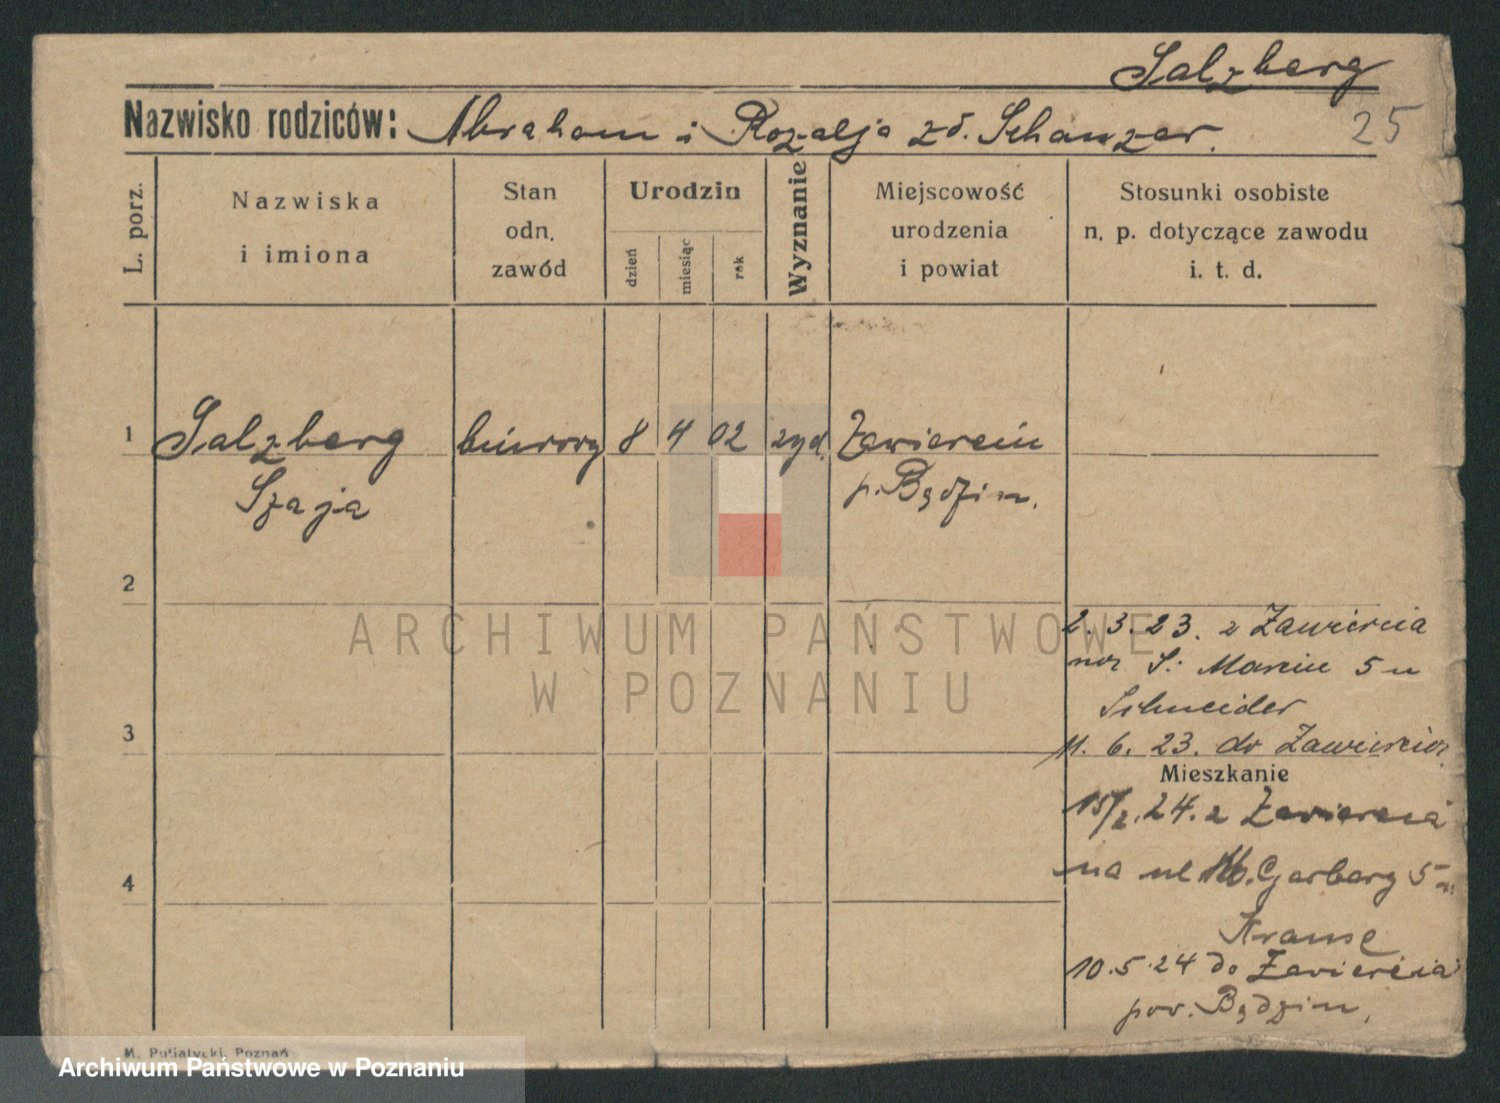 Salzberg
Nazwisko rodziców: Abraham i Rozalja zd. Schanzer.
25
L. porz.
Nazwiska
i imiona
Stan
odn.
zawód
Urodzin
dzień
miesiąc
rok
Wyznanie
Miejscowość
urodzenia
i powiat
Stosunki osobiste
n. p. dotyczące zawodu
i. t. d.
1
Salzberg
Szaja
biurowy
8
4
02
zyd.
Zawierciu
p. Będzin.
2
2. 3. 23. z Zawiercia
na S: Marcin 5 u
Schneider
3
11. 6. 23. do Zawiercia
Mieszkanie
15/2. 24. z Zawiercia
na ul M. Garbary 5
4
Krause
10. 5. 24 do Zawiercia
pow. Będzin.
M. Putiatycki, Poznań
ARCHIWUM PAŃSTWOWE
W POZNANIU
Archiwum Państwowe w Poznaniu